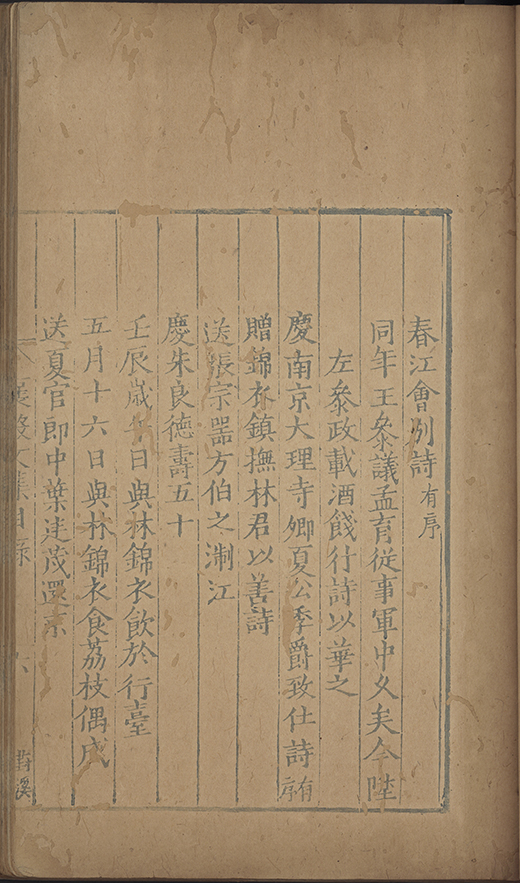 春江會别詩有序
同年王叅議孟育從事軍中久矣今陞
左叅政載酒餞行詩以華之
慶南京大理寺卿夏公季爵致仕詩有序
贈錦衣鎮撫林君以善詩
送張宗器方伯之淛江
慶朱良德壽五十
壬辰歲午日與林錦衣飲於行臺
五月十六日與林錦衣食荔枝偶成
送夏官郎中葉廷茂還京
襄毅文集目錄 六